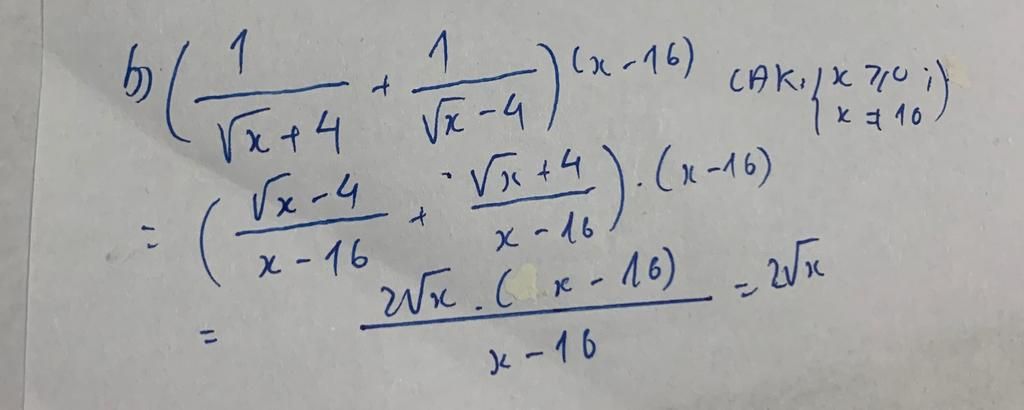 b) (1/(√x + 4) + 1/(√x - 4)) (x - 16) (ĐK: { x ≥ 0 ; x ≠ 16)
= ((√x - 4)/(x - 16) + (√x + 4)/(x - 16)) . (x - 16)
= (2√x . (x - 16))/(x - 16) = 2√x